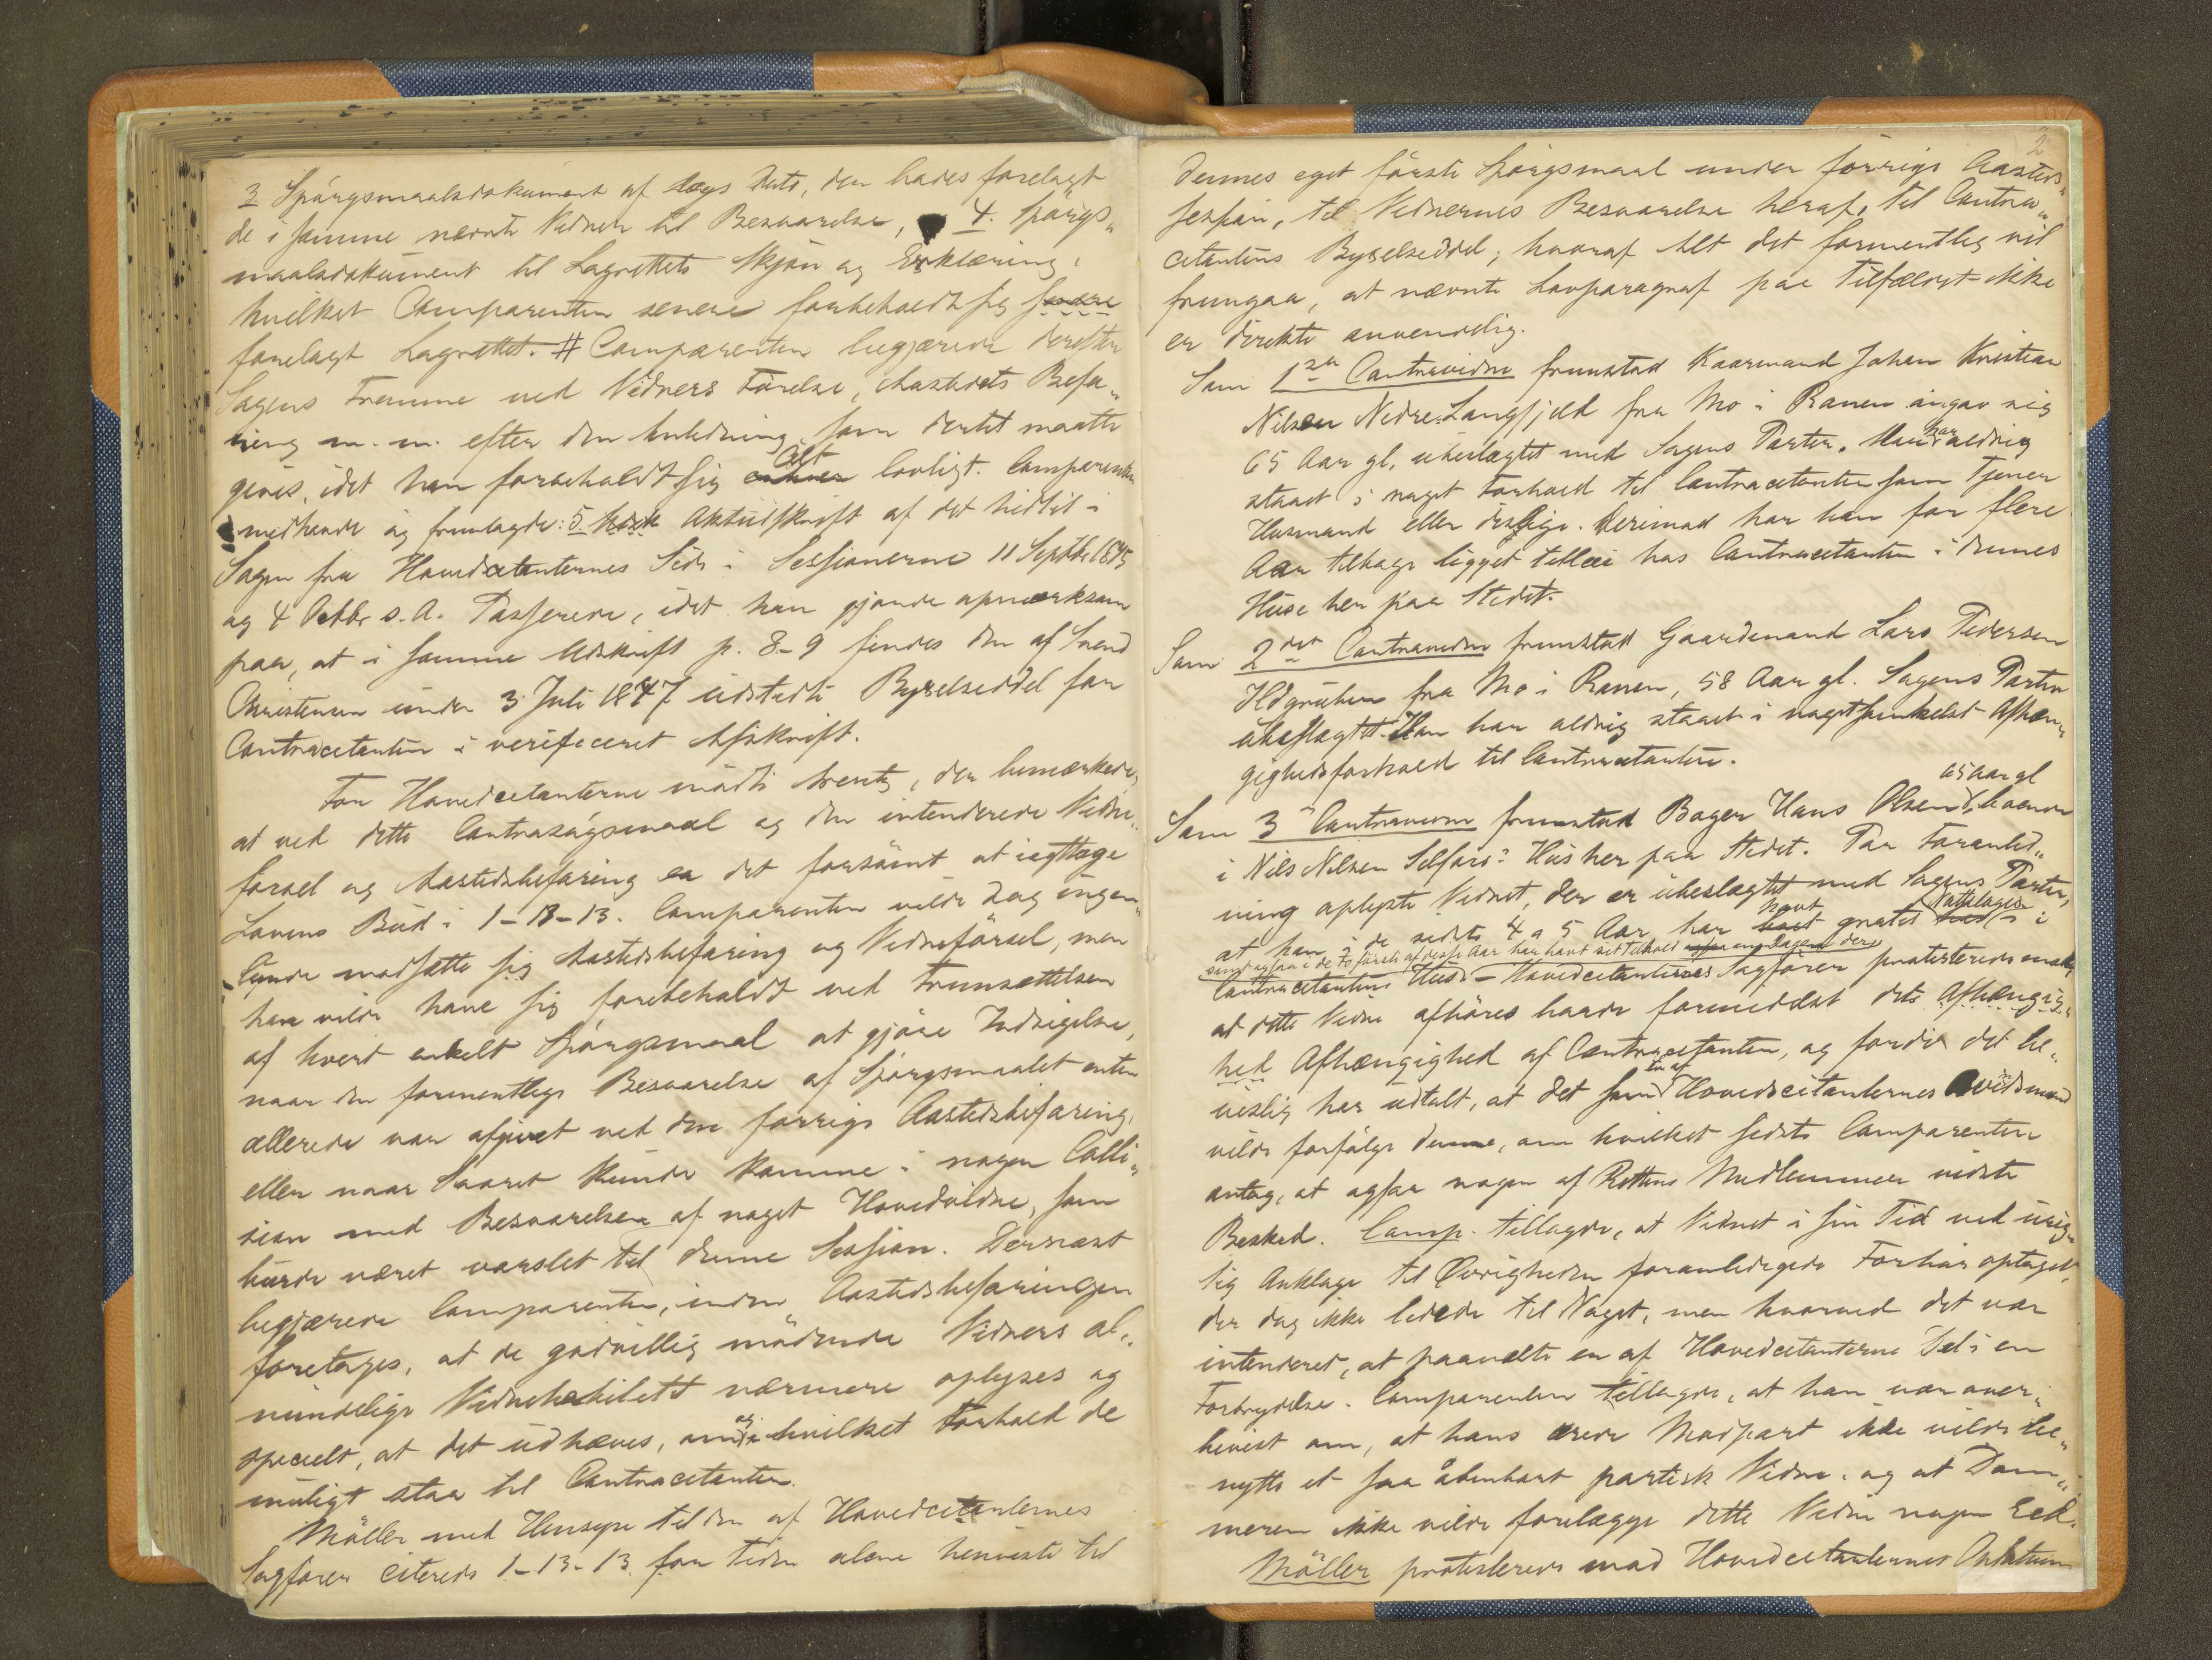 3 Spørgsmaalsdokument af Dags Dato, der hades forelagt
de i samme nævnte Vidner til Besvarelse, 4. Spørgs„
maalsdokument til Lagrettets Skjøn og Erklæring,
hvilket Comparenten senere forbeholdt sig
forelagt Lagrettet. # Comparenten begjærede derefter
Sagens Fremme ved Vidners Førelse, Aastedets Befa„
ring m. m. efter den Anledning, som dertil maatte
gives, idet han forbeholdt sig Alt lovligt. Comparenten
medhavde og fremlagde: 5. Aktudskrift af det hidtil i
Sagen fra Hovedcitanternes Side i Sessionerne 11 Septbr 1895
og 4 Octbr s. A. Passerede, idet han gjorde opmærksom
paa, at i samme Udskrift p. 8-9 findes den af Svend
Christensen under 3 Juli 1847 udstedte Bygselseddel for
Contracitanten i verificeret Afskrift.
For Hovedcitanterne mødte, der bemærkede,
at ved dette Contrasøgsmaal og den intenderede Vidne„
førsel og Aastedsbefaring er det forsømt at iagttage
Lovens Bud i 1-13-13. Comparenten vilde dog ingen„
lunde modsætte sig Aastedsbefaring og Vidneførsel, men
han vilde have sig forbeholdt ved Fremsættelsen
af hvert enkelt Spørgsmaal at gjøre Indsigelse,
naar den formentlige Besvarelse af Spørgsmaalet enten
allerede var afgivet ved den forrige Aastedsbefaring,
eller naar Svaret kunde komme i nogen Colli„
sion med Besvarelsen af noget Hovedvidne, som
burde været varslet til denne Session. Dernæst
begjærede Comparenten, inden Aastedsbefaringen
foretages, at de godvillig mødende Vidners al„
mindelige Vidnehabilitet nærmere oplyses og
specielt, at det udhæves, om og i hvilket Forhold de
muligt staa til Contracitanten.
Møller med Hensyn til den af Hovedcitanternes
Sagfører citerede 1-13-13 for Tiden alene henviste til
2
dennes eget første Spørgsmaal under forrige Aasteds„
session, til Vidnernes Besvarelse heraf, til Contra„
citantens Bygselseddel; hvoraf Alt det formentlig vil
fremgaa, at nævnte Lovparagraf paa Tilfældet ikke
er direkte anvendelig.
Som 1ste Contravidne fremstod Kaarmand Johan Kristian
Nilsen Nedre Langfjeld fra Mo i Ranen angav sig
65 Aar gl, ubeslægtet med Sagens Parter. Han har aldrig
staaet i noget Forhold til Contracitanten som Tjener
Husmand eller deslige. Derimod har han for flere
Aar tilbage ligget tilleie hos Contracitanten i dennes
Huse her paa Stedet.
Som 2det Contravidne fremstod Gaardmand Lars Pedersen
Ildgruben fra Mo i Ranen, 58 Aar gl. Sagens Parter
ubeslægtet. Han har aldrig staaet i nogetsomhelst Afhæn„
gighedsforhold til Contracitanten.
Som 3 Contravidne fremstod Bager Hans Olsen 65 Aar gl, boende
i Nils Nilsen Selfors' Hus her paa Stedet. Paa Foranled„
ning oplyste Vidnet, der er ubeslægtet med Sagens Parter,
at han i de sidste 4 a 5 Aar har havt gratis Natteleie i
Contracitantens Hus. – Hovedcitanternes Sagfører protesterede mod,
at dette Vidne afhøres baade formedelst dets Afhængig„
hed Afhængighed af Contracitanten, og fordi det be„
vislig har udtalt, at det som en af Hovedcitanternes Avindsmænd
vilde forfølge denne, om hvilket sidste Comparenten
antog, at ogsaa nogen af Rettens Medlemmer vidste
Besked. Comp. tillagde, at Vidnet i sin Tid ved urig„
tig Anklage til Øvrigheden foranledigede Forhør optaget,
der dog ikke ledede til Noget, men hvorved det var
intenderet, at paavælte en af Hovedcitanterne Del i en
Forbrydelse. Comparenten tillagde, at han var over„
bevist om, at hans ærede Modpart ikke vilde be„
nytte et saa åbenbart partisk Vidne, og at Dom„
meren ikke vilde forelægge dette Vidne nogen Eed.
Møller protesterede mod Hovedcitanternes